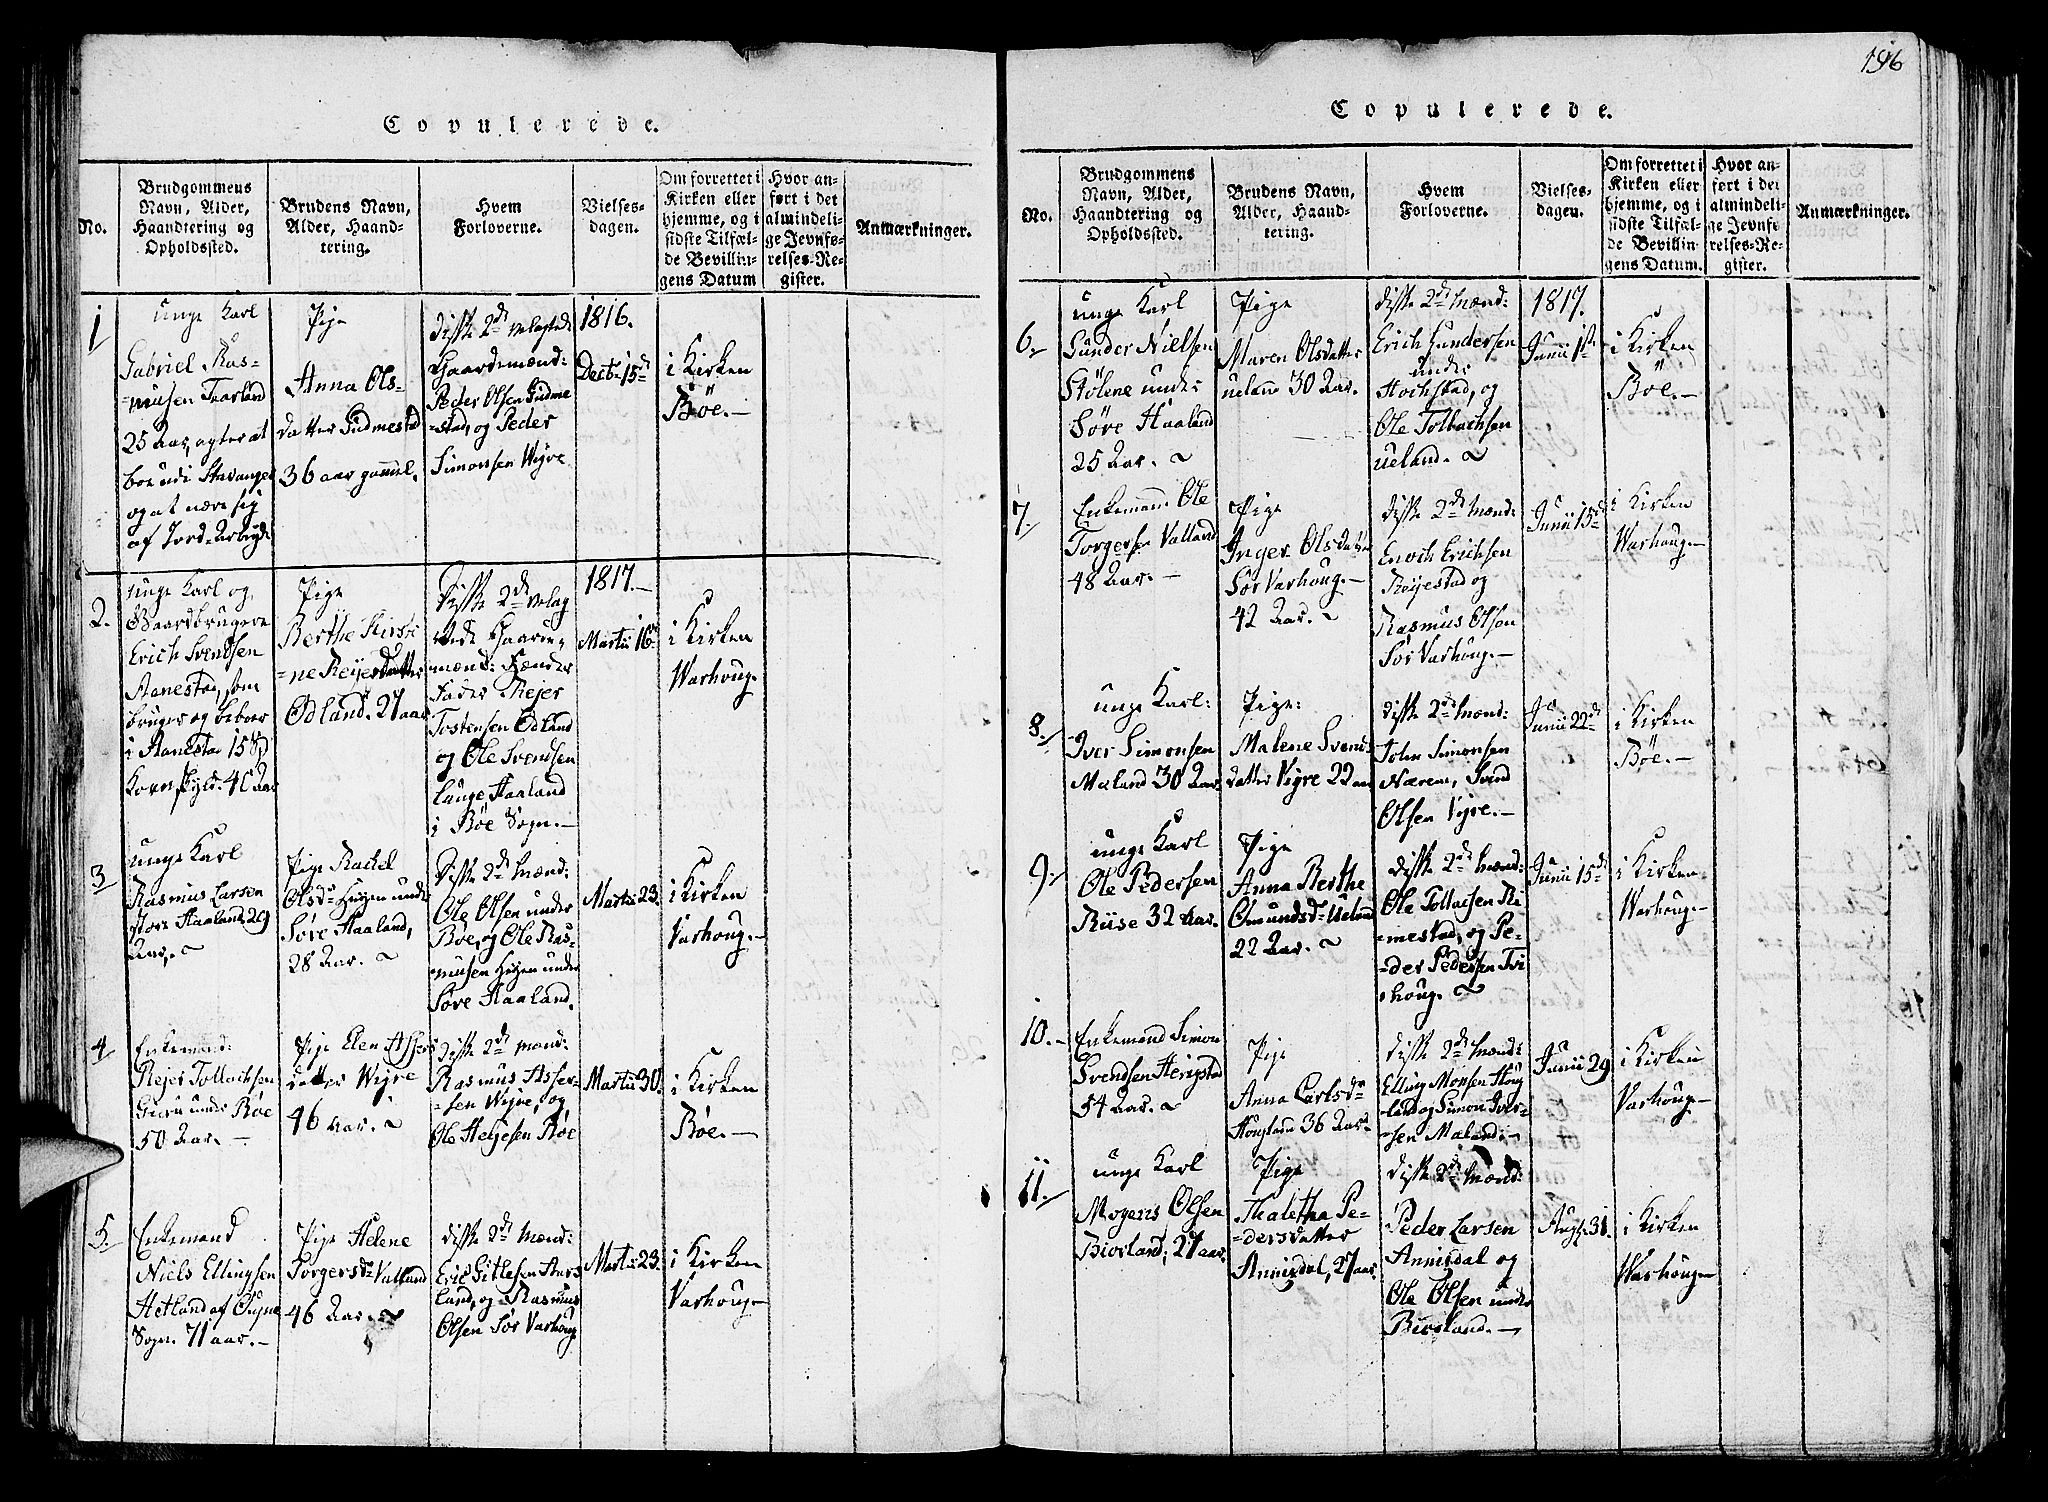 196
Copulerede.
No.
Brudgommens
Navn, Alder,
Haandtering og
Opholdssted.
Brudens Navn,
Alder, Haand-
tering.
Hvem
Forloverne.
Vielses-
dagen.
Om forrettet i
Kirken eller
hjemme, og i
sidste Tilfæl-
de Bevillin-
gens Datum
Hvor an-
ført i det
almindeli-
ge Jevnfø-
relses-Re-
gister.
Anmærkninger.
1
unge Karl
Gabriel Ras-
=musen Taarland
25 Aar, agter at
boe udi Stavanger
og at nære sig
af Jord-Arbeyde
Pige
Anna Ols-
datter Gudmestad
36 aar gammel.
disse 2de velagtede
Gaardemænd:
Peder Olsen Gudme
=stad, og Peder
Simonsen Wigre
1816.
Decb: 15de
i Kirken
Bøe.-
2.
unge Karl og
Gaardbrugere
Erich Svendsen
Aanestad, som
bruger og beboer
i Aanestad 15
Korn skyld. 40 Aar
Pige
Berthe Kirsti
=ne Reyersdatter
Odland. 27 aar
Disse 2de velag
tede Gaard
mænd:
Fader Rejer
Tostensen Odland
og Ole Svendsen
Lauge Haaland
i Bøe Sogn.-
1817.-
Martii 16de
i Kirken
Warhoug.-
3
unge Karl
Rasmus Larsen
store Haaland 29
Aar.~
Pige Rachel
Olsdr Høyen under
Søre Haaland,
28 Aar. ~
Disse 2de Mænd:
Ole Olsen under
Bøe, og Ole Ras-
=musen Høyen under
Søre Haaland.
Martii 23.
i Kirken
Varhoug.-
4
Enkemand:
Rejer Tollachsen
under Bøe
50 Aar. -
Pige Elen Assers
datter Wigre
46 Aar. ~
disse 2de Mænd:
Rasmus Asser-
=sen Wigre, og
Ole Helgesen Bøe
Martii 30.
i Kirken
Bøe.-
5.
Enkemand
Niels Ellingsen
Hetland af Ougne
Sogn. 71 aar.-
Pige Helene
Torgersdr Valland
46 Aar. ~
disse 2de Mænd:
Eric Sitlesen Aars
land, og Rasmus
Olsen Sør Varhoug
Martii 23.
i Kirken
Varhoug.-
Copulerede.
No.
Brudgommens
Navn, Alder,
Haandtering og
Opholdssted.
Brudens Navn,
Alder, Haand-
tering.
Hvem
Forloverne.
Vielses-
dagen.
Om forrettet i
Kirken eller
hjemme, og i
sidste Tilfæl-
de Bevillin-
gens Datum.
Hvor an-
ført i det
almindeli-
ge Jevnfø-
relses-Re-
gister.
Anmærkninger.
6.
unge Karl
Gunder Nielsen
Stølene under
Søre Haaland
25 Aar. ~
Pige
Maren Olsdatter
ueland 30 Aar.
disse 2de Mænd:
Erich Gundersen
under
Hochstad, og
Ole Tolbachsen
ueland. ~
1817.
Junii 1ste
i Kirken
Bøe.-
7.
Enkemand Ole
Torgersen Valland
48 Aar.-
Pige
Inger Olsdatter
Sør Varhoug.-
42 Aar. ~
disse 2de Mænd:
Enoch Erichsen
Røyestad og
Rasmus Olsen
Sør Varhoug.-
Junii 15de
i Kirken
Warhoug.-
8.
unge Karl:
Iver Simonsen
Maland 30 Aar.
Pige:
Malene Svends
datter Vigre 22 aar
disse 2de Mænd:
John Simonsen
Nærem, Svend
Olsen Vigre.-
Junii 22de
i Kirken
Bøe.-
9.
unge Karl
Ole Pedersen
Riise 32 Aar.
Pige
Anna Berthe
Omundsdr Ueland
22 Aar. ~
disse 2de Mænd:
Ole Tollacsen Ri
=mestad, og Pe-
=der Pedersen Tvi
houg. ~
Junii 15de
i Kirken
Warhoug.-
10.-
Enkemand Simon
Svendsen Herigstad
54 Aar. ~
Pige
Anna Carlsdr
Hougland 36 Aar.
disse 2de Mænd:
Elling Monsen Houg
land og Simon Iver-
=sen Maland.-
Junii 29
i Kirken
Varhoug.-
11.
unge Karl
Mogens Olsen
Biorland, 27 aar.
Pige
Thaletha Pe-
=dersdatter
Annisdal, 27 aar.
disse 2de Mænd:
Peder Larsen
Annisdal og
Ole Olsen under
Biorland.-
Augs: 31.
i Kirken
Warhoug-